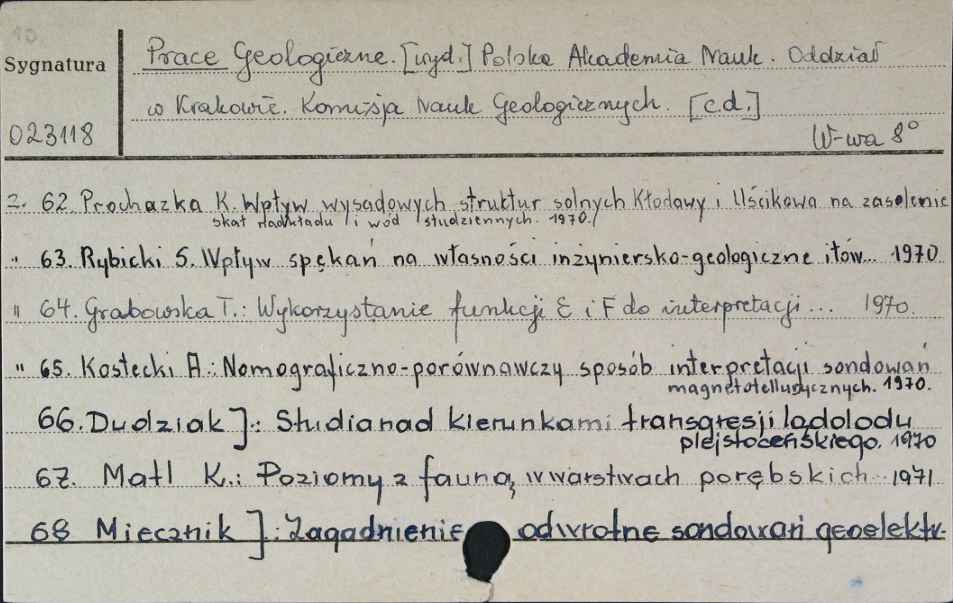 Sygnatura
Prace Geologiczne. [wyd.] Polska Akademia Nauk. Oddział
w Krakowie. Komisja Nauk Geologicznych. [c.d.]
023118
W-wa 8°
z. 62. Prochazka K. Wpływ wysadowych struktur solnych Kłodawy i Uścikowa na zasolenie
skał nadkładu i wód studziennych. 1970.
" 63. Rybicki S. Wpływ spękań na własności inżyniersko-geologiczne iłów... 1970
" 64. Grabowska T.: Wykorzystanie funkcji E i F do interpretacji... 1970.
" 65. Kostecki A.: Nomograficzno-porównawczy sposób interpretacji sondowań
magnetotellurycznych. 1970.
66. Dudziak J.: Studia nad kierunkami transgresji lądolodu
plejstoceńskiego. 1970
67. Matl K.: Poziomy z fauną w warstwach porębskich 1971
68 Miecznik J.: Zagadnienie odwrotne sondowań geoelektr.